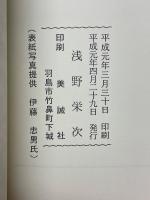 平成元年三月三十日 印刷
平成元年四月二十九日 発行
浅野栄次
印刷 美誠社
羽島市竹鼻町下城
(表紙写真提供 伊藤忠男氏)